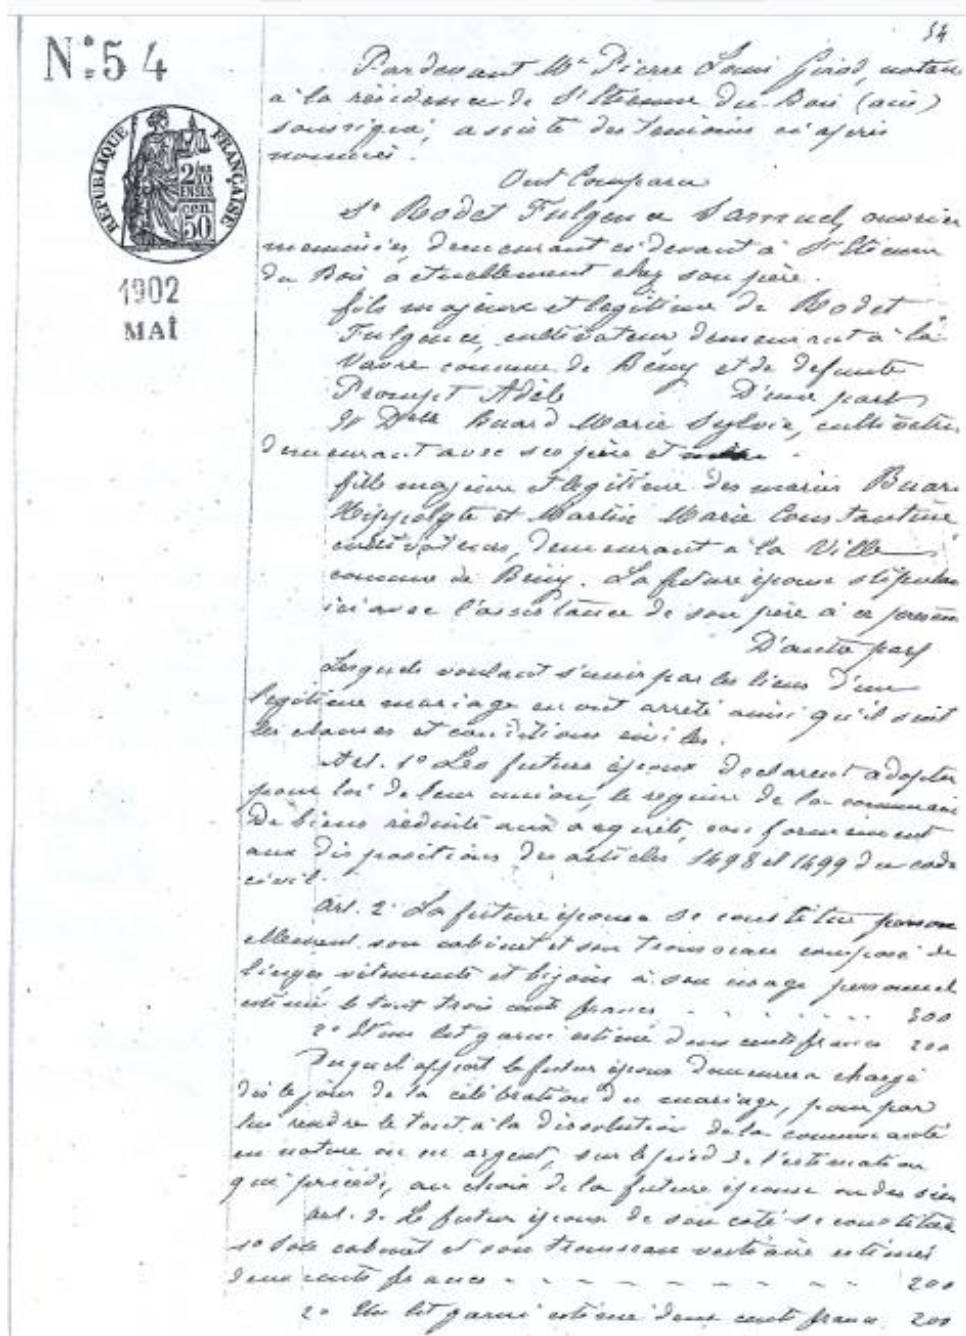 54
N° 54
RÉPUBLIQUE FRANÇAISE
2/10
EN SUS
cen.
50
1902
MAI
Pardevant Me Pierre Louis Girod, notaire
à la résidence de St Etienne du Bois (ain)
soussigné, assisté des témoins ci après
nommés.
Ont Comparu
Sr Rodet Fulgence Samuel, ouvrier
menuisier, demeurant ci devant à St Etienne
du Bois actuellement chez son père.
fils majeur et légitime de Rodet
Fulgence, cultivateur demeurant à la
Vavre commune de Bény et de défunte
Prompt Adèle D'une part
Et Delle Buard Marie Sylvie, cultivatrice
demeurant avec ses père et
fille majeure et légitime des mariés Buard
Hippolyte et Martin Marie Constantine
cultivateurs, demeurant à la Ville
commune de Bény. La future épouse stipulant
ici avec l'assistance de son père à ce présent
D'autre part
Lesquels voulant s'unir par les liens d'un
légitime mariage en ont arrêté ainsi qu'il suit
les clauses et conditions civiles.
Art. 1o Les futurs époux déclarent adopter
pour loi de leur union, le régime de la communauté
de biens réduite aux acquêts, conformément
aux dispositions des articles 1498 et 1499 du code
civil.
Art. 2o La future épouse se constitue person
ellement son cabinet et son trousseau composé de
linges, vêtements et bijoux à son usage personnel
estimé le tout trois cents francs 300
2o Et un lit garni estimé deux cents francs 200
Duquel apport le futur époux demeurera chargé
dès le jour de la célébration du mariage, pour par
lui rendre le tout à la dissolution de la communauté
en nature ou en argent, sur le pied de l'estimation
qui précède, au choix de la future épouse ou des siens
Art. 3. Le futur époux de son côté se constitue
1o Son cabinet et son trousseau vestiaire estimés
deux cents francs 200
2o Un lit garni estimé deux cents francs 200